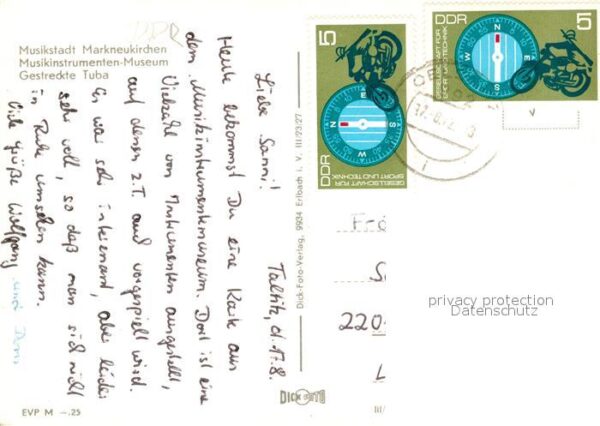 Musikstadt Markneukirchen
Musikinstrumenten-Museum
Gestreckte Tuba
DDR
Taltitz, d. 17.8.
Liebe Sanni!
Heute bekommst Du eine Karte aus
dem Musikinstrumentenmuseum. Dort ist eine
Vielzahl von Instrumenten ausgestellt,
auf denen z.T. auch vorgespielt wird.
Es war sehr interessant, aber leider
sehr voll, so daß man sich nicht
in Ruhe umsehen kann.
Viele Grüße Wolfgang und
EVP M –.25
Dick-Foto-Verlag, 9934 Erlbach i. V. III/23/27
DICK FOTO
III/
DDR
5
GESELLSCHAFT FÜR
SPORT UND TECHNIK
N
E
S
W
DDR
5
GESELLSCHAFT FÜR
SPORT UND TECHNIK
N
E
S
W
V
Frö
S
220
L
privacy protection
Datenschutz